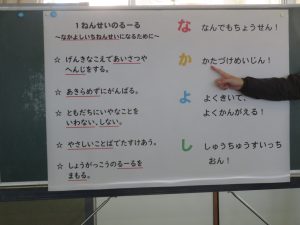 １ねんせいのるーる
～なかよしいちねんせいになるために～
☆ げんきなこえであいさつや
へんじをする。
☆ あきらめずにがんばる。
☆ ともだちにいやなことを
いわない、しない。
☆ やさしいことばでたすけあう。
☆ しょうがっこうのるーるを
まもる。
な なんでもちょうせん！
か かたづけめいじん！
よ よくきいて、
よくかんがえる！
し しゅうちゅうすいっち
おん！